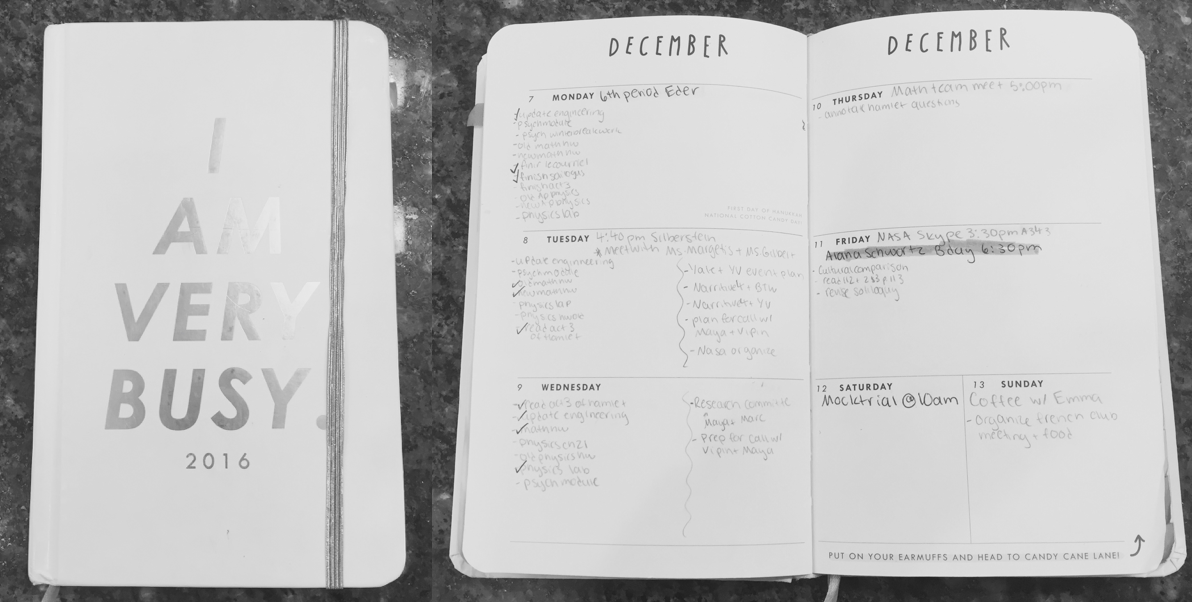 I
AM
VERY
BUSY.
2016
DECEMBER
7 MONDAY 6th period Eder
update engineering
- psych module
- psych winter break work
- old math hw
- new math hw
- finish soliloquy
finish act 3
old AP physics
- physics lab
FIRST DAY OF HANUKKAH
NATIONAL COTTON CANDY DAY
8 TUESDAY 4:40pm Silberstein
* Meet with Ms. Margets + Ms. Gilbert
- update engineering
- psych module
- old math hw
- new math hw
physics lab
- physics mode
- read act 3
of hamlet
- Yale + YV event plan
- Narritude + BTW
- Narritude + YV
- plan for call w/
Maya + Vipin
- Nasa organize
9 WEDNESDAY
- read act 3 of hamlet
- update engineering
- math hw
- physics ch 21
- old physics hw
- physics lab
- psych module
- Research committee
Maya + Marc
- Prep for call w/
Vipin + Maya
DECEMBER
10 THURSDAY Math team meet 5:00pm
- annotate hamlet questions
11 FRIDAY NASA Skype 3:30pm A343
Alana Schwartz Bday 6:30pm
- Cultural comparison
- revise soliloquy
12 SATURDAY
Mocktrial @ 10am
13 SUNDAY
Coffee w/ Emma
- Organize french club
meeting + food
PUT ON YOUR EARMUFFS AND HEAD TO CANDY CANE LANE!